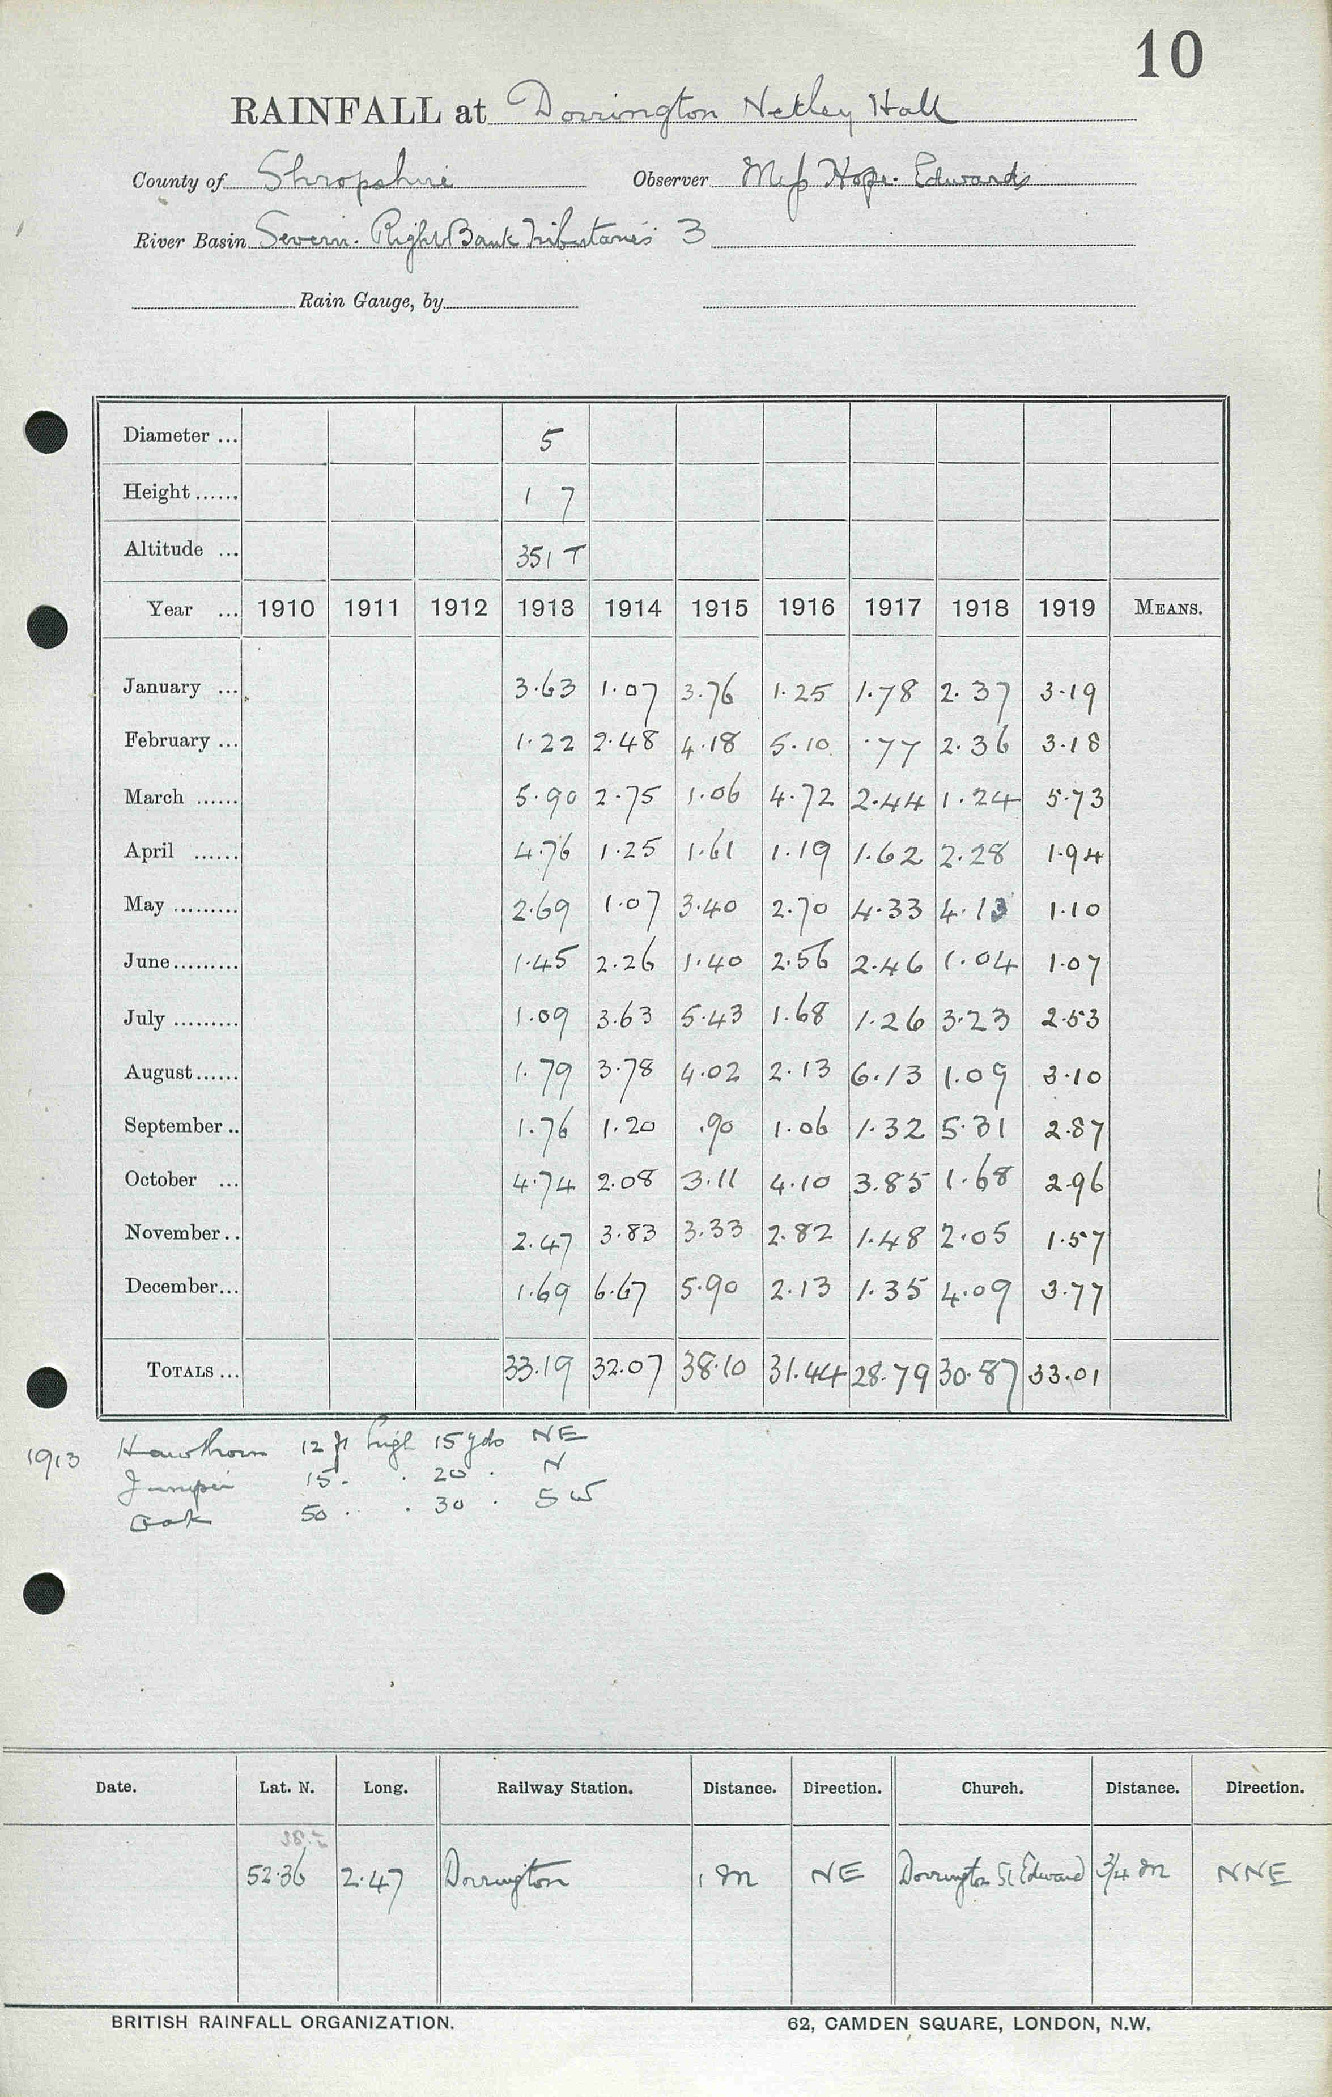 10
RAINFALL at Dorrington Netley Hall
County of Shropshire Observer Miss Hope-Edwards
River Basin Severn. Right Bank Tributaries 3
Rain Gauge, by
Diameter ... 5
Height ...... 1 7
Altitude ... 351 T
Year ... 1910 1911 1912 1913 1914 1915 1916 1917 1918 1919 MEANS.
January ... 3.63 1.07 3.76 1.25 1.78 2.37 3.19
February ... 1.22 2.48 4.18 5.10 .77 2.36 3.18
March ...... 5.90 2.75 1.06 4.72 2.44 1.24 5.73
April ...... 4.76 1.25 1.61 1.19 1.62 2.28 1.94
May ......... 2.69 1.07 3.40 2.70 4.33 4.13 1.10
June......... 1.45 2.26 1.40 2.56 2.46 1.04 1.07
July ......... 1.09 3.63 5.43 1.68 1.26 3.23 2.53
August...... 1.79 3.78 4.02 2.13 6.13 1.09 3.10
September .. 1.76 1.20 .90 1.06 1.32 5.31 2.87
October ... 4.74 2.08 3.11 4.10 3.85 1.68 2.96
November.. 2.47 3.83 3.33 2.82 1.48 2.05 1.57
December... 1.69 6.67 5.90 2.13 1.35 4.09 3.77
TOTALS ... 33.19 32.07 38.10 31.44 28.79 30.87 33.01
1913 Hawthorn 12 ft high 15 yds NE
Juniper 15 . . 20 . N
Oak 50 . . 30 . SW
Date. Lat. N. Long. Railway Station. Distance. Direction. Church. Distance. Direction.
52.36 2.47 Dorrington 1 m NE Dorrington St Edward 3/4 m NNE
BRITISH RAINFALL ORGANIZATION. 62, CAMDEN SQUARE, LONDON, N.W.